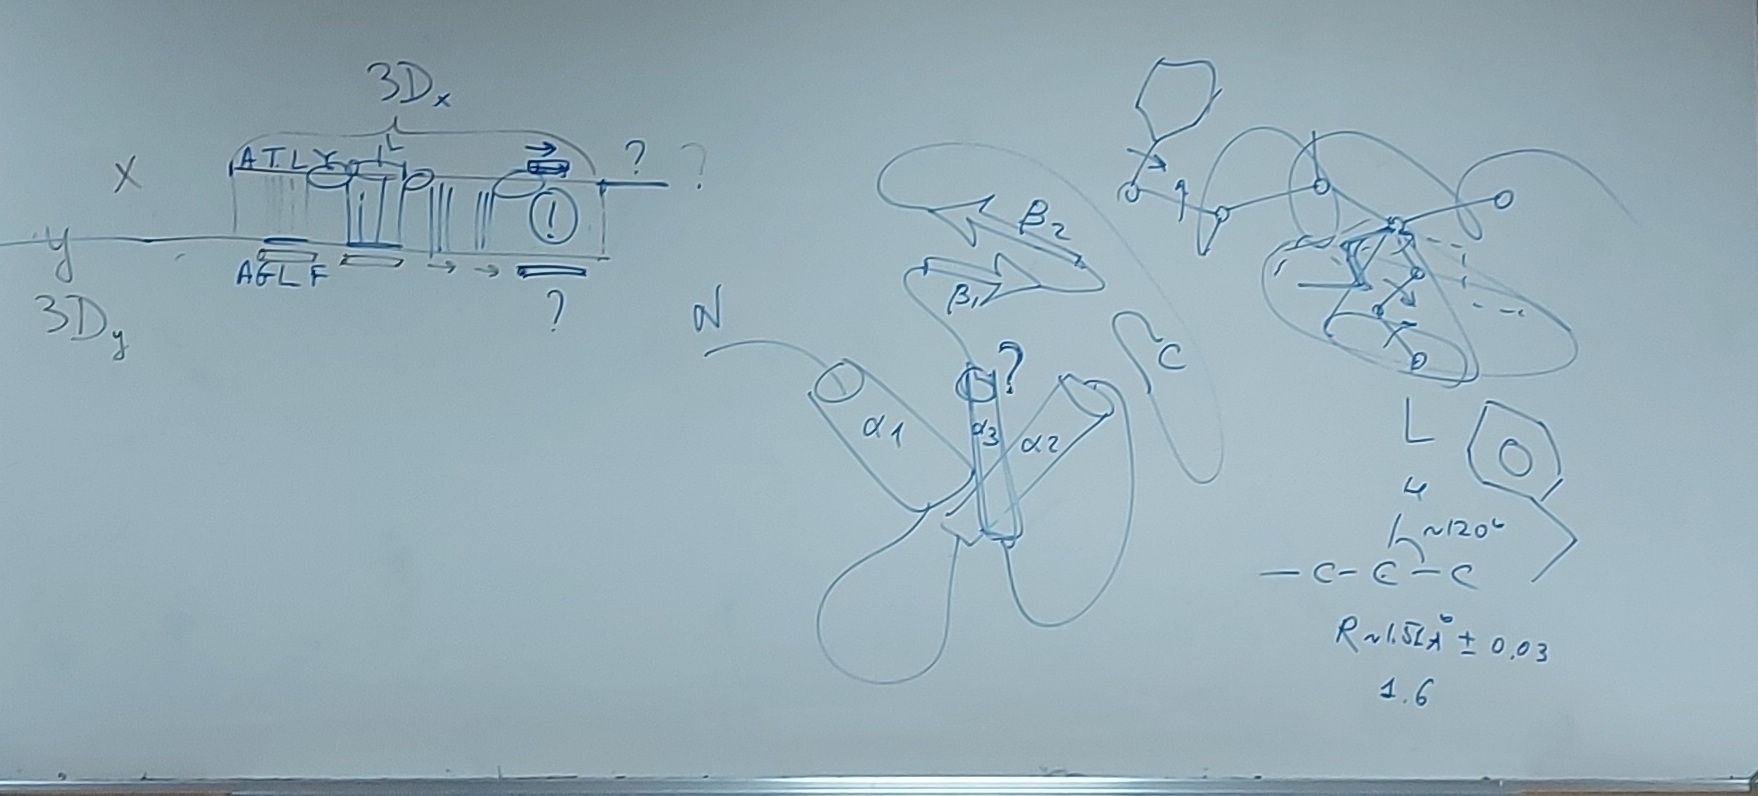 3Dx
X ATLY L ? ?
y
AGLF
3Dy ?
!
β2
β1
N
C
?
α1 α3 α2
L
H
~120°
— C - C - C
± 0.03
1.6